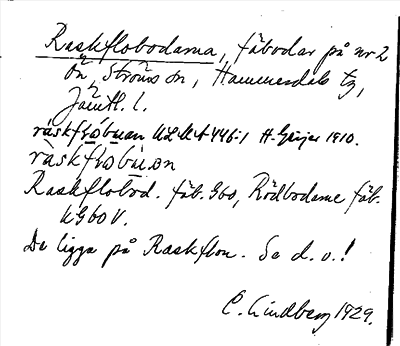 Raskflobodarna, fäbodar på nr 2
Ön, Ströms sn, Hammerdals tg,
Jämtl. l.
ráskfɫo̱bu̱an ULMA 446:1 H. Geijer 1910.
ràskfɫo̱bù̱ɑn
Raskflobod. fäb. G60, Rödbodarne fäb.
KG60V.
De ligga på Raskflon. Se d. o.!
C. Lindberg 1929.